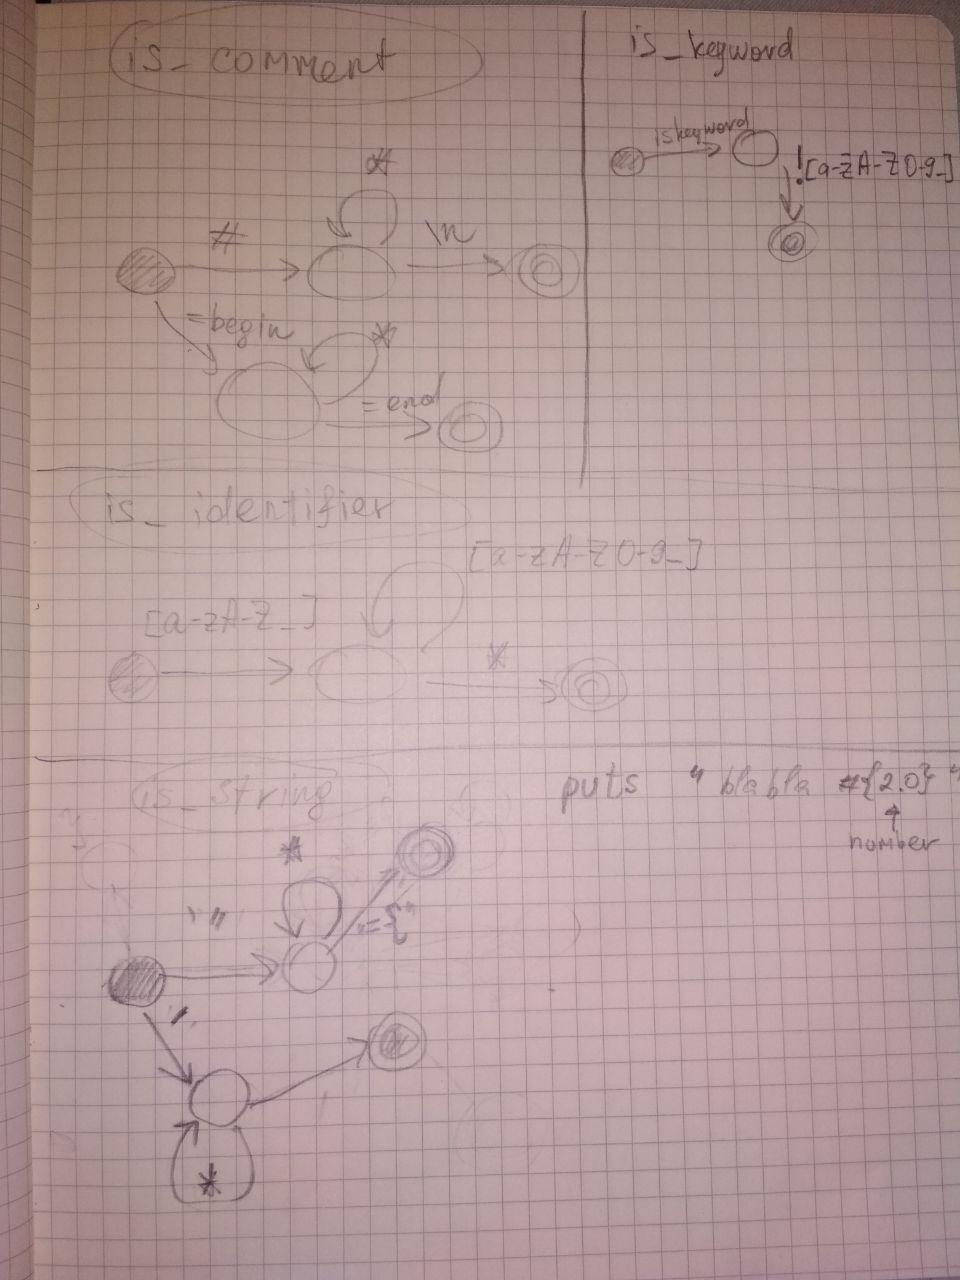 is_ comment
*
# \n
=begin
*
=end
is_keyword
iskeyword
![a-zA-Z0-9_]
is_ identifier
[a-zA-Z0-9_]
[a-zA-Z_]
*
is_string
puts " blabla #{2.0} "
number
*
*